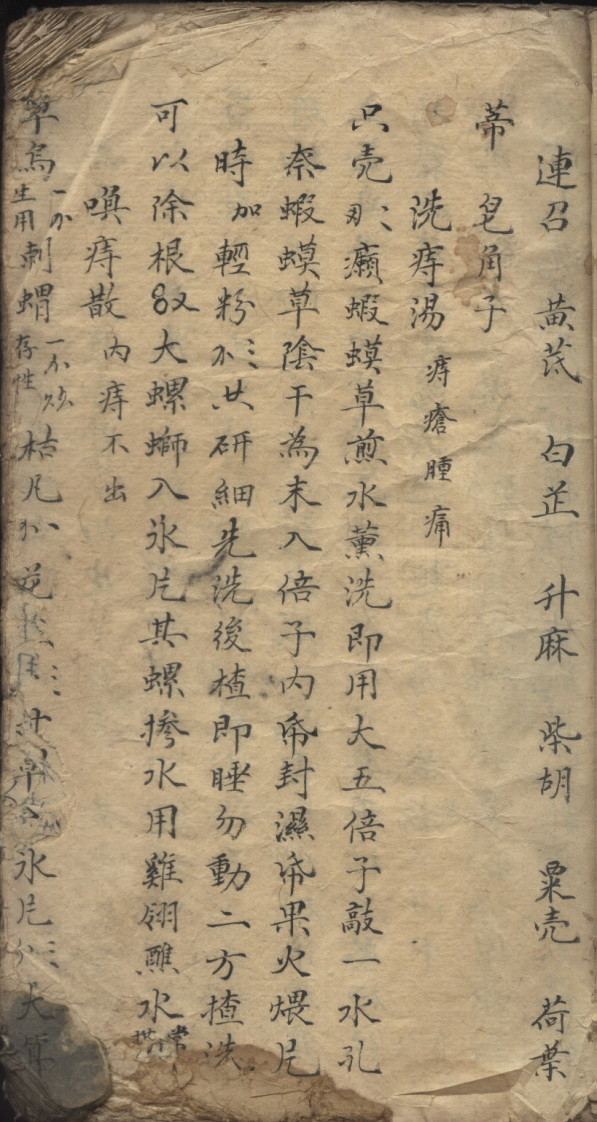 連召 黄芪 白芷 升麻 柴胡 粟壳 荷葉
蒂 皂角子
洗痔湯 痔瘡腫痛
只壳 癩蝦蟆草煎水薰洗即用大五倍子敲一水孔
奈蝦蟆草陰干為末入倍子内帋封濕帋果火煨片
時加輕粉 共研細先洗後楂即睡勿動二方揸洗
可以除根 大螺螄入氷片其螺摻水用雞翎蘸水常
喚痔散 内痔不出
草烏 生用 刺猬 存性 枯凡 氷片 大